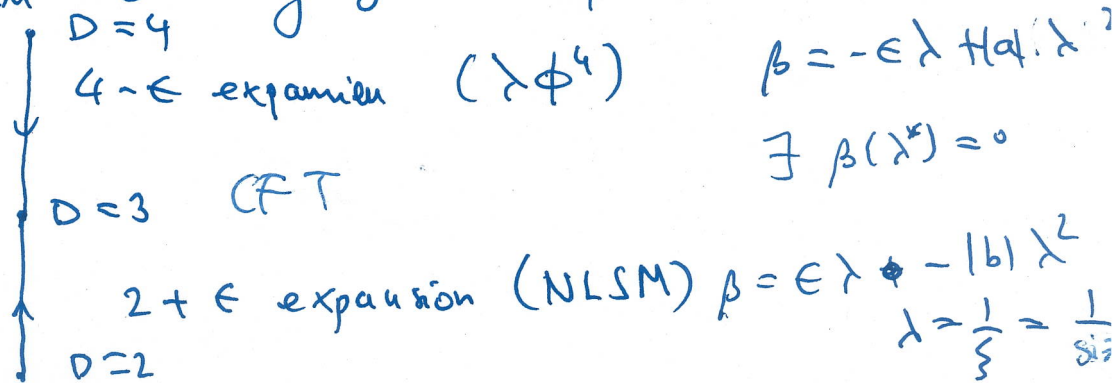 D = 4
4-ε expansion (λφ⁴) β = -ελ + |a|.λ²
∃ β(λ*) = 0
D = 3 CFT
2 + ε expansion (NLSM) β = ελ - |b| λ²
λ = 1/ξ = 1/
D = 2